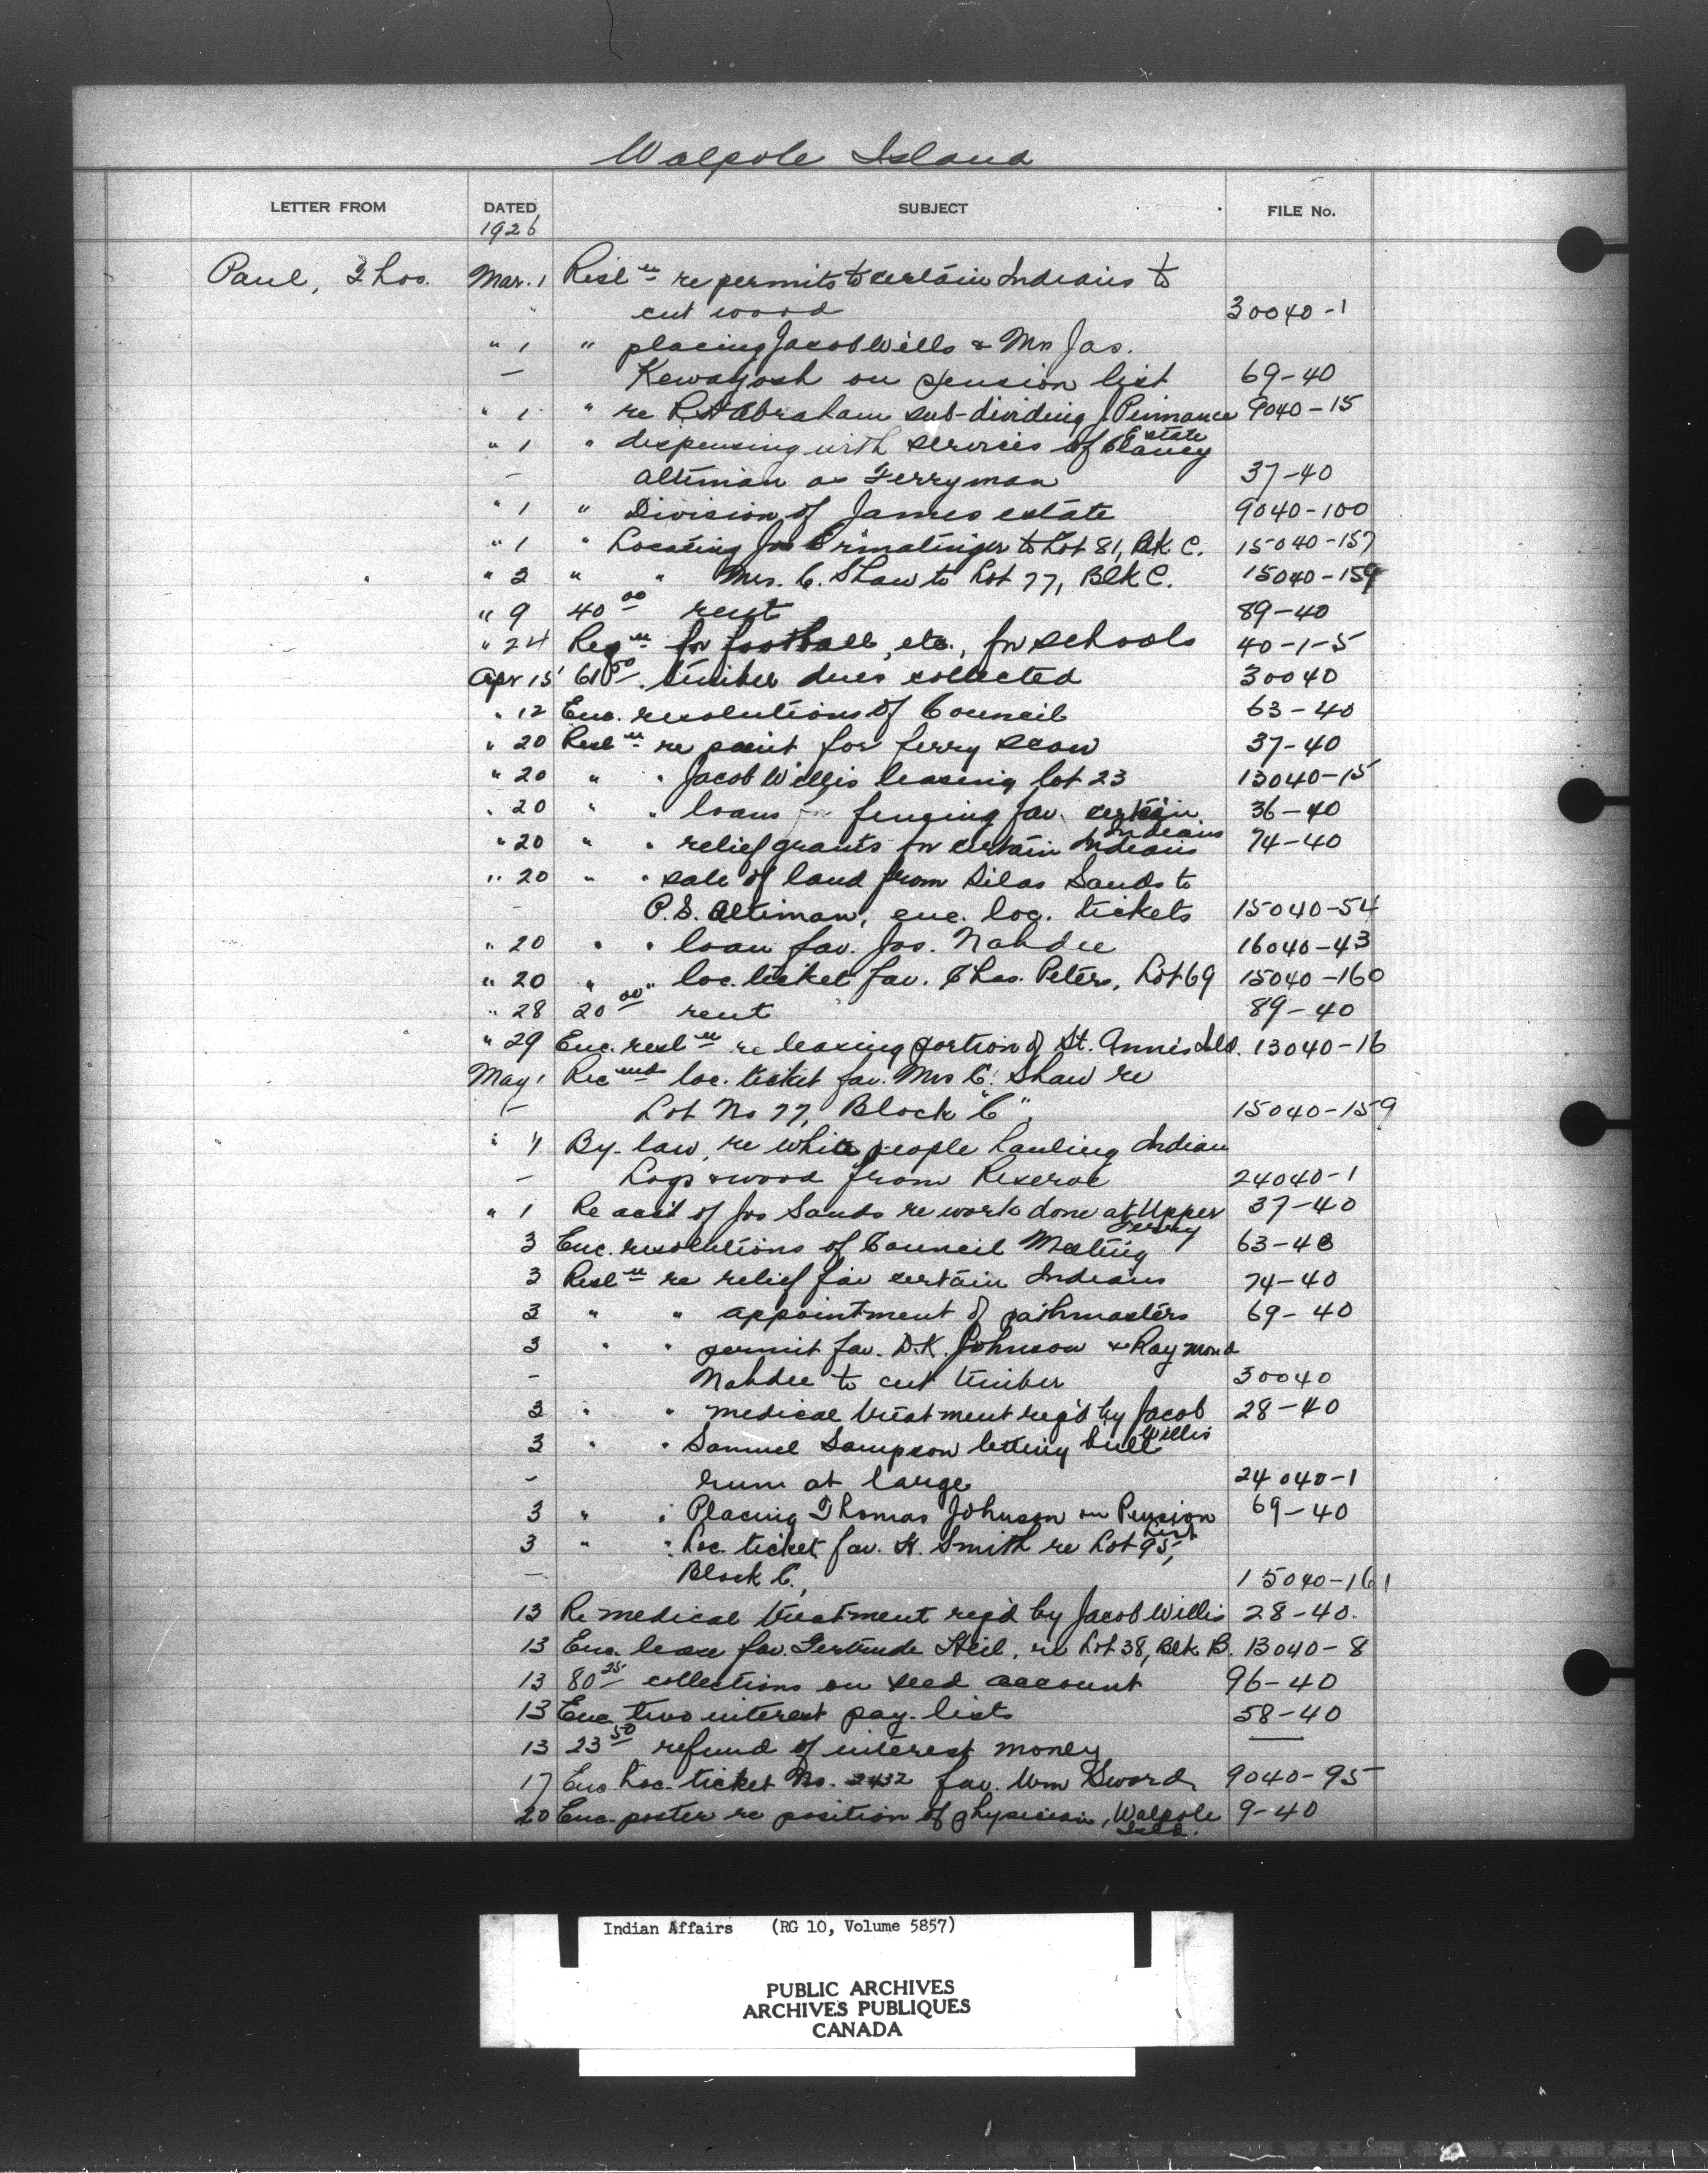 Walpole Island
LETTER FROM DATED SUBJECT FILE No.
1926
Paul, Thos. Mar. 1 Resl n re permits to certain Indians to
cut wood 30040-1
" 1 " placing Jacob Wills & Mrs Jas.
— Kewayosh on pension list 69-40
" 1 " re R.A. Abraham sub-dividing J. Pinnance 9040-15
Estate
" 1 " dispensing with services of Clancy
— Altiman as Ferryman 37-40
" 1 " Division of James estate 9040-100
" 1 " Locating Jos Ermatinger to Lot 81, Blk C. 15040-157
" 2 " " Mrs. C. Shaw to Lot 77, Blk C. 15040-159
" 9 40 00 rent 89-40
" 24 Reqn for football, etc., for schools 40-1-5
Apr 15 61 50. timber dues collected 30040
" 12 Enc. resolutions of Council 63-40
" 20 Resl n re paint for ferry scow 37-40
" 20 " " Jacob Willis leasing lot 23 13040-15
" 20 " " loans for fencing fav. certain 36-40
Indians
" 20 " " relief grants for certain Indians 74-40
" 20 " " sale of land from Silas Sands to
— P.S. Altiman, enc. loc. tickets 15040-54
" 20 " " loan fav. Jos. Nahdee 16040-43
" 20 " " loc. ticket fav. Chas. Peters, Lot 69 15040-160
" 28 20 00 rent 89-40
" 29 Enc. resl n re leasing portion of St. Anns Isld. 13040-16
May 1 Rec md loc. ticket fav. Mrs C. Shaw re
— Lot No 77, Block "C". 15040-159
" 1 By-law, re white people hauling Indian
— Logs & wood from Reserve 24040-1
" 1 Re acct of Jos Sands re work done at Upper 37-40
Ferry
3 Enc. resolutions of Council Meeting 63-40
3 Resl n re relief fav certain Indians 74-40
3 " " appointment of pathmasters 69-40
3 " " permit fav. D.K. Johnson & Raymond
— Nahdee to cut timber 30040
3 " " medical treatment req'd by Jacob 28-40
Willis
3 " " Samuel Sampson letting bull
— run at large 24040-1
3 " " Placing Thomas Johnson on Pension 69-40
List
3 " " Loc. ticket fav. H. Smith re Lot 95,
— Block C, 15040-161
13 Re medical treatment req'd by Jacob Willis 28-40.
13 Enc. lease fav. Gertrude Heil, re Lot 38, Blk B. 13040-8
13 80 25 collections on seed account 96-40
13 Enc. two interest pay-lists 58-40
13 23 50 refund of interest money —
17 Enc Loc. ticket No. 2432 fav. Wm Sword, 9040-95
20 Enc. poster re position of physician, Walpole 9-40
Isld.
Indian Affairs (RG 10, Volume 5857)
PUBLIC ARCHIVES
ARCHIVES PUBLIQUES
CANADA